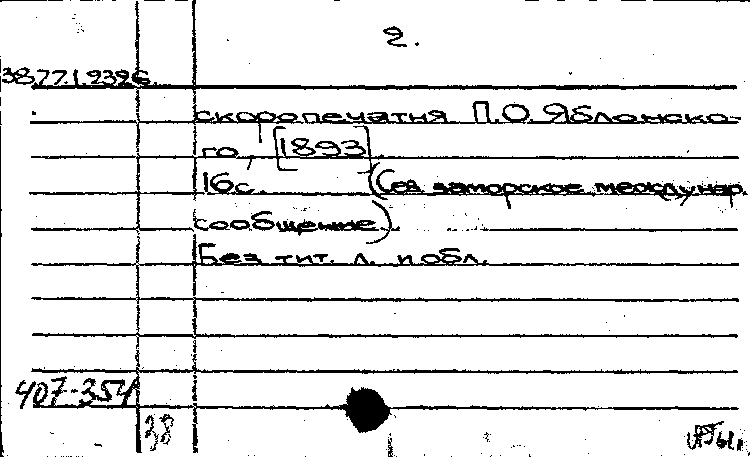 2.
38.77.1.2326.
скоропечатня П.О. Яблонско-
го, [1893]
16с. (Сев. заморское междунар.
сообщение).
Без тит. л. и обл.
407-354
38